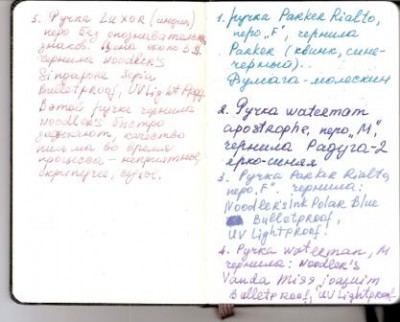 5. Ручка Luxor (индия),
перо без опознавательн.
знаков. Цена около 3 $.
чернила Noodler's
Singapore серии
Bulletproof, UV Light Proof
В этой ручке чернила
Noodler's быстро
качество
письма во время
процесса – неприятное,
скрипучее, сухое.
1. ручка Parker Rialto,
перо „F", чернила
Parker (квинк, сине-
черный).
Бумага-молескин
2. Ручка waterman
apostrophe, перо „M",
чернила Радуга-2
ярко-синяя
3. Ручка Parker Rialto,
перо „F". чернила:
Noodler's Ink Polar Blue
Bulletproof,
UV Lightproof.
4. Ручка waterman, M
чернила: Noodler's
Vanda Miss joaquim
Bulletproof, UV Lightproof